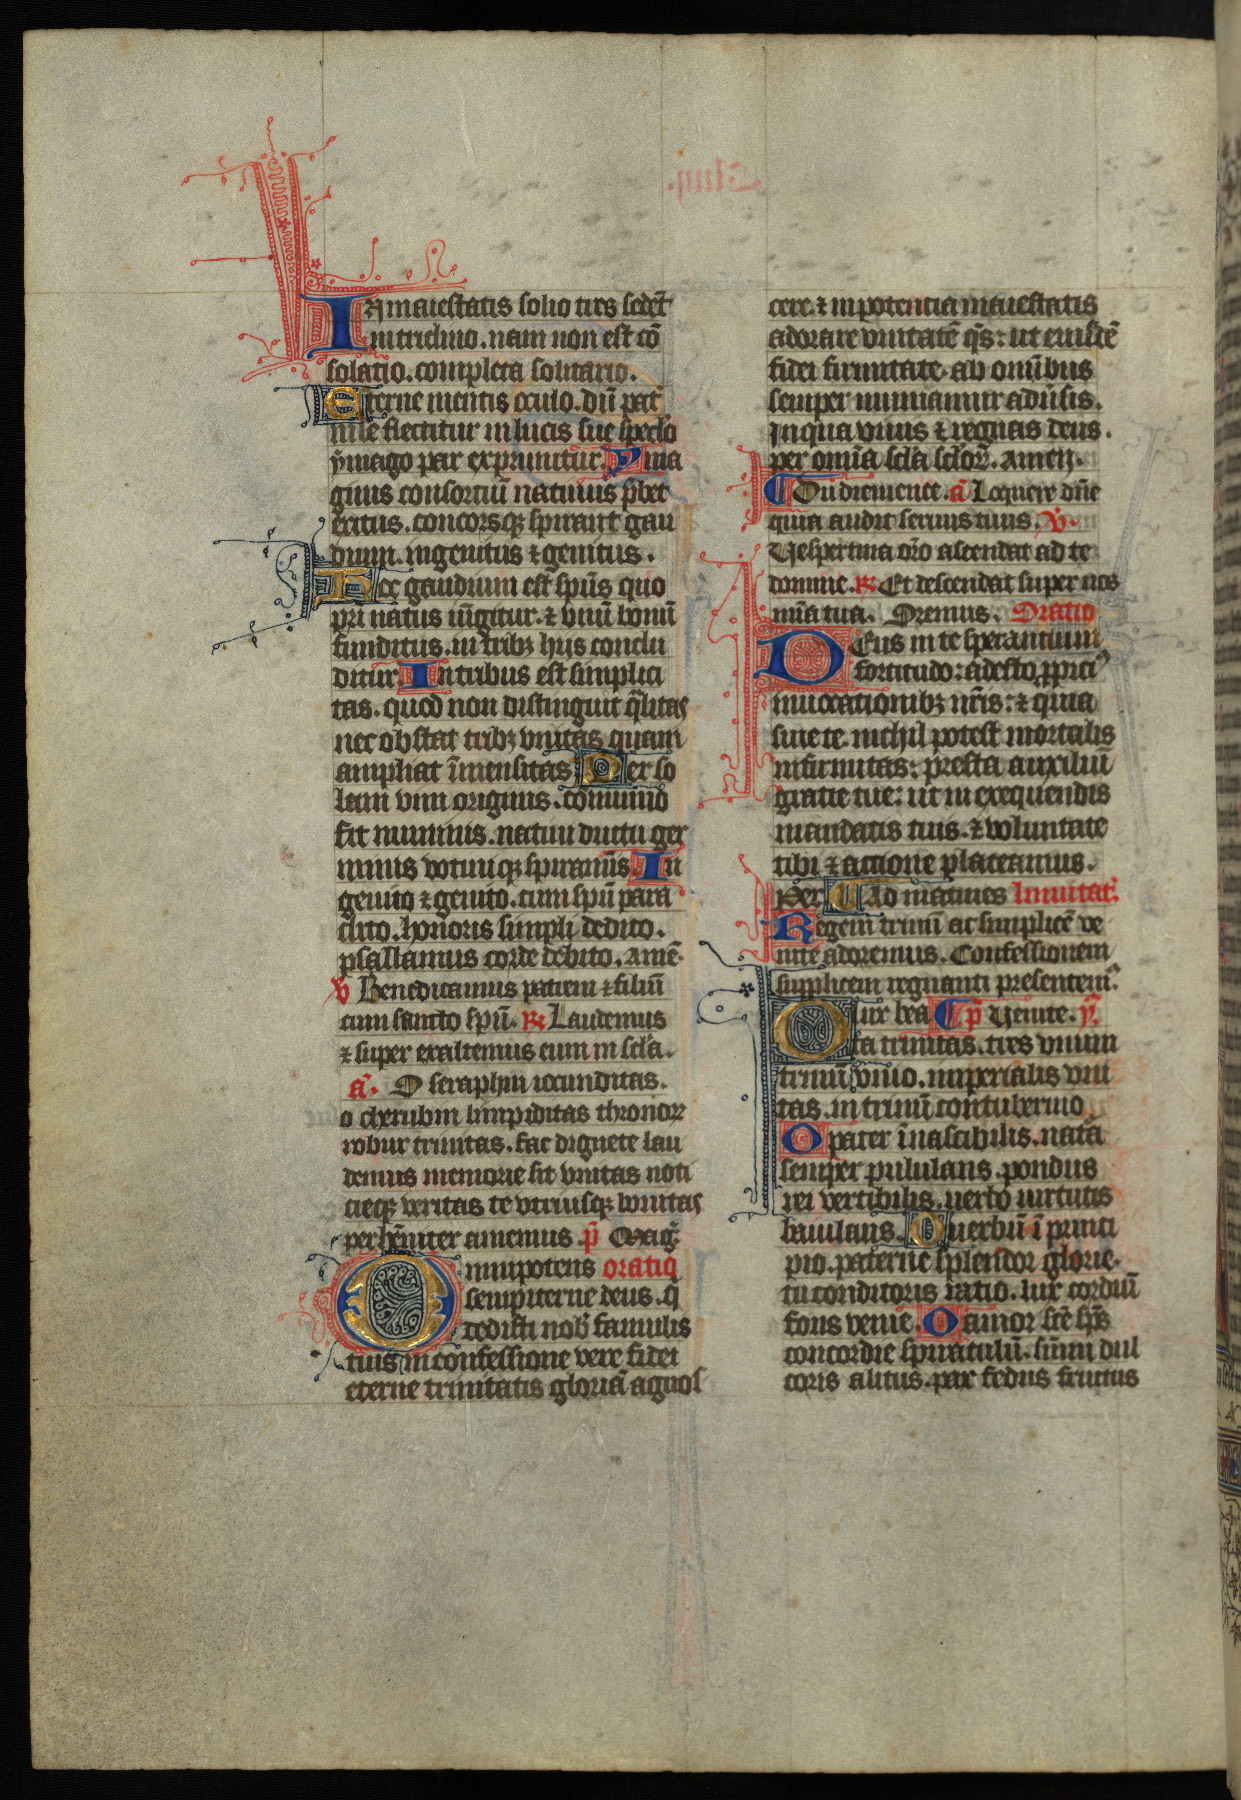 In maiestatis solio tres sedēt
in triclinio. nam non est cō
solatio. completa solitario.
Eterne mentis oculo. dū pat̄
in se flectitur in lucis sue specl̄o
ẏmago par exprimitur. Yma
ginis consortiū natiuus p̄bet
exitus. concorsqꝫ spirant gau
dium. ingenitus ⁊ genitus.
Hoc gaudium est spūs quo
pr̄i natus iūgitur. ⁊ vnū bonū
funditus. in tribꝫ hijs conclu
ditur. In tribus est simplici
tas. quod non distinguit q̄litas
nec obstat tribꝫ vnitas quam
ampliat īmensitas Per so
lam vim originis. cōmunio
fit numinis. natiui ductu ger
minis votiuiqꝫ spiraminis In
genito ⁊ genito. cum spū para
clito. honoris simpli dedito.
psallamus corde debito. amē.
v̄ Benedicamus patrem ⁊ filiū
cum sancto spū. R Laudemus
⁊ super exaltemus eum in sc̄la.
a. O seraphin iocunditas.
o cherubin limpiditas thronoꝝ
robur trinitas. fac digne te lau
demus memorie sit vnitas noti
cieqꝫ veritas te vtriusqꝫ bonitas
perhēniter amemus. p̄ Maḡ.
Omnipotens oratio
sempiterne deus. q̄
dedisti nob̄ famulis
tuis in confessione vere fidei
eterne trinitatis gloriā agnos
cere. ⁊ in potentia maiestatis
adorare vnitatē q̄s: ut eiusdē
fidei firmitate. ab omībus
semper muniamur adūsis.
In qua viuis ⁊ regnas deus.
per omīa sc̄la sc̄loꝝ. amen.
Nunc dimittis. a Loquere dn̄e
quia audit seruus tuus. v̄.
Uespertina or̄o ascendat ad te
domine. R Et descendat super nos
mīa tua. Oremus. Oratio
Deus in te sperantium
fortitudo: adesto ꝓpici⁹
inuocationibꝫ nr̄is: ⁊ quia
sine te nichil potest mortalis
infirmitas: presta auxiliū
gratie tue: ut in exequendis
mandatis tuis. ⁊ voluntate
tibi ⁊ actione placeamus.
Per Ad matines Inuitat̄.
Regem trinū ac simplicē ve
nite adoremus. Confessionem
supplicem regnanti presentem⁹.
O lux bea p̄ Uenite. y.
ta trinitas. tres vnum
trinū vnio. imperialis vni
tas. in trinū contubernio.
O pater īnascibilis. nata
semper pululans. pondus
rei vertibilis. uerbo uirtutis
baiulans. O uerbū ī princi
pio. paterne splendor glorie.
tu conditoris ratio. lux cordiū
fons venie. O amor sc̄e sp̄s
concordie spiraculū. sūmi dul
coris alitus. pax fedus fructus